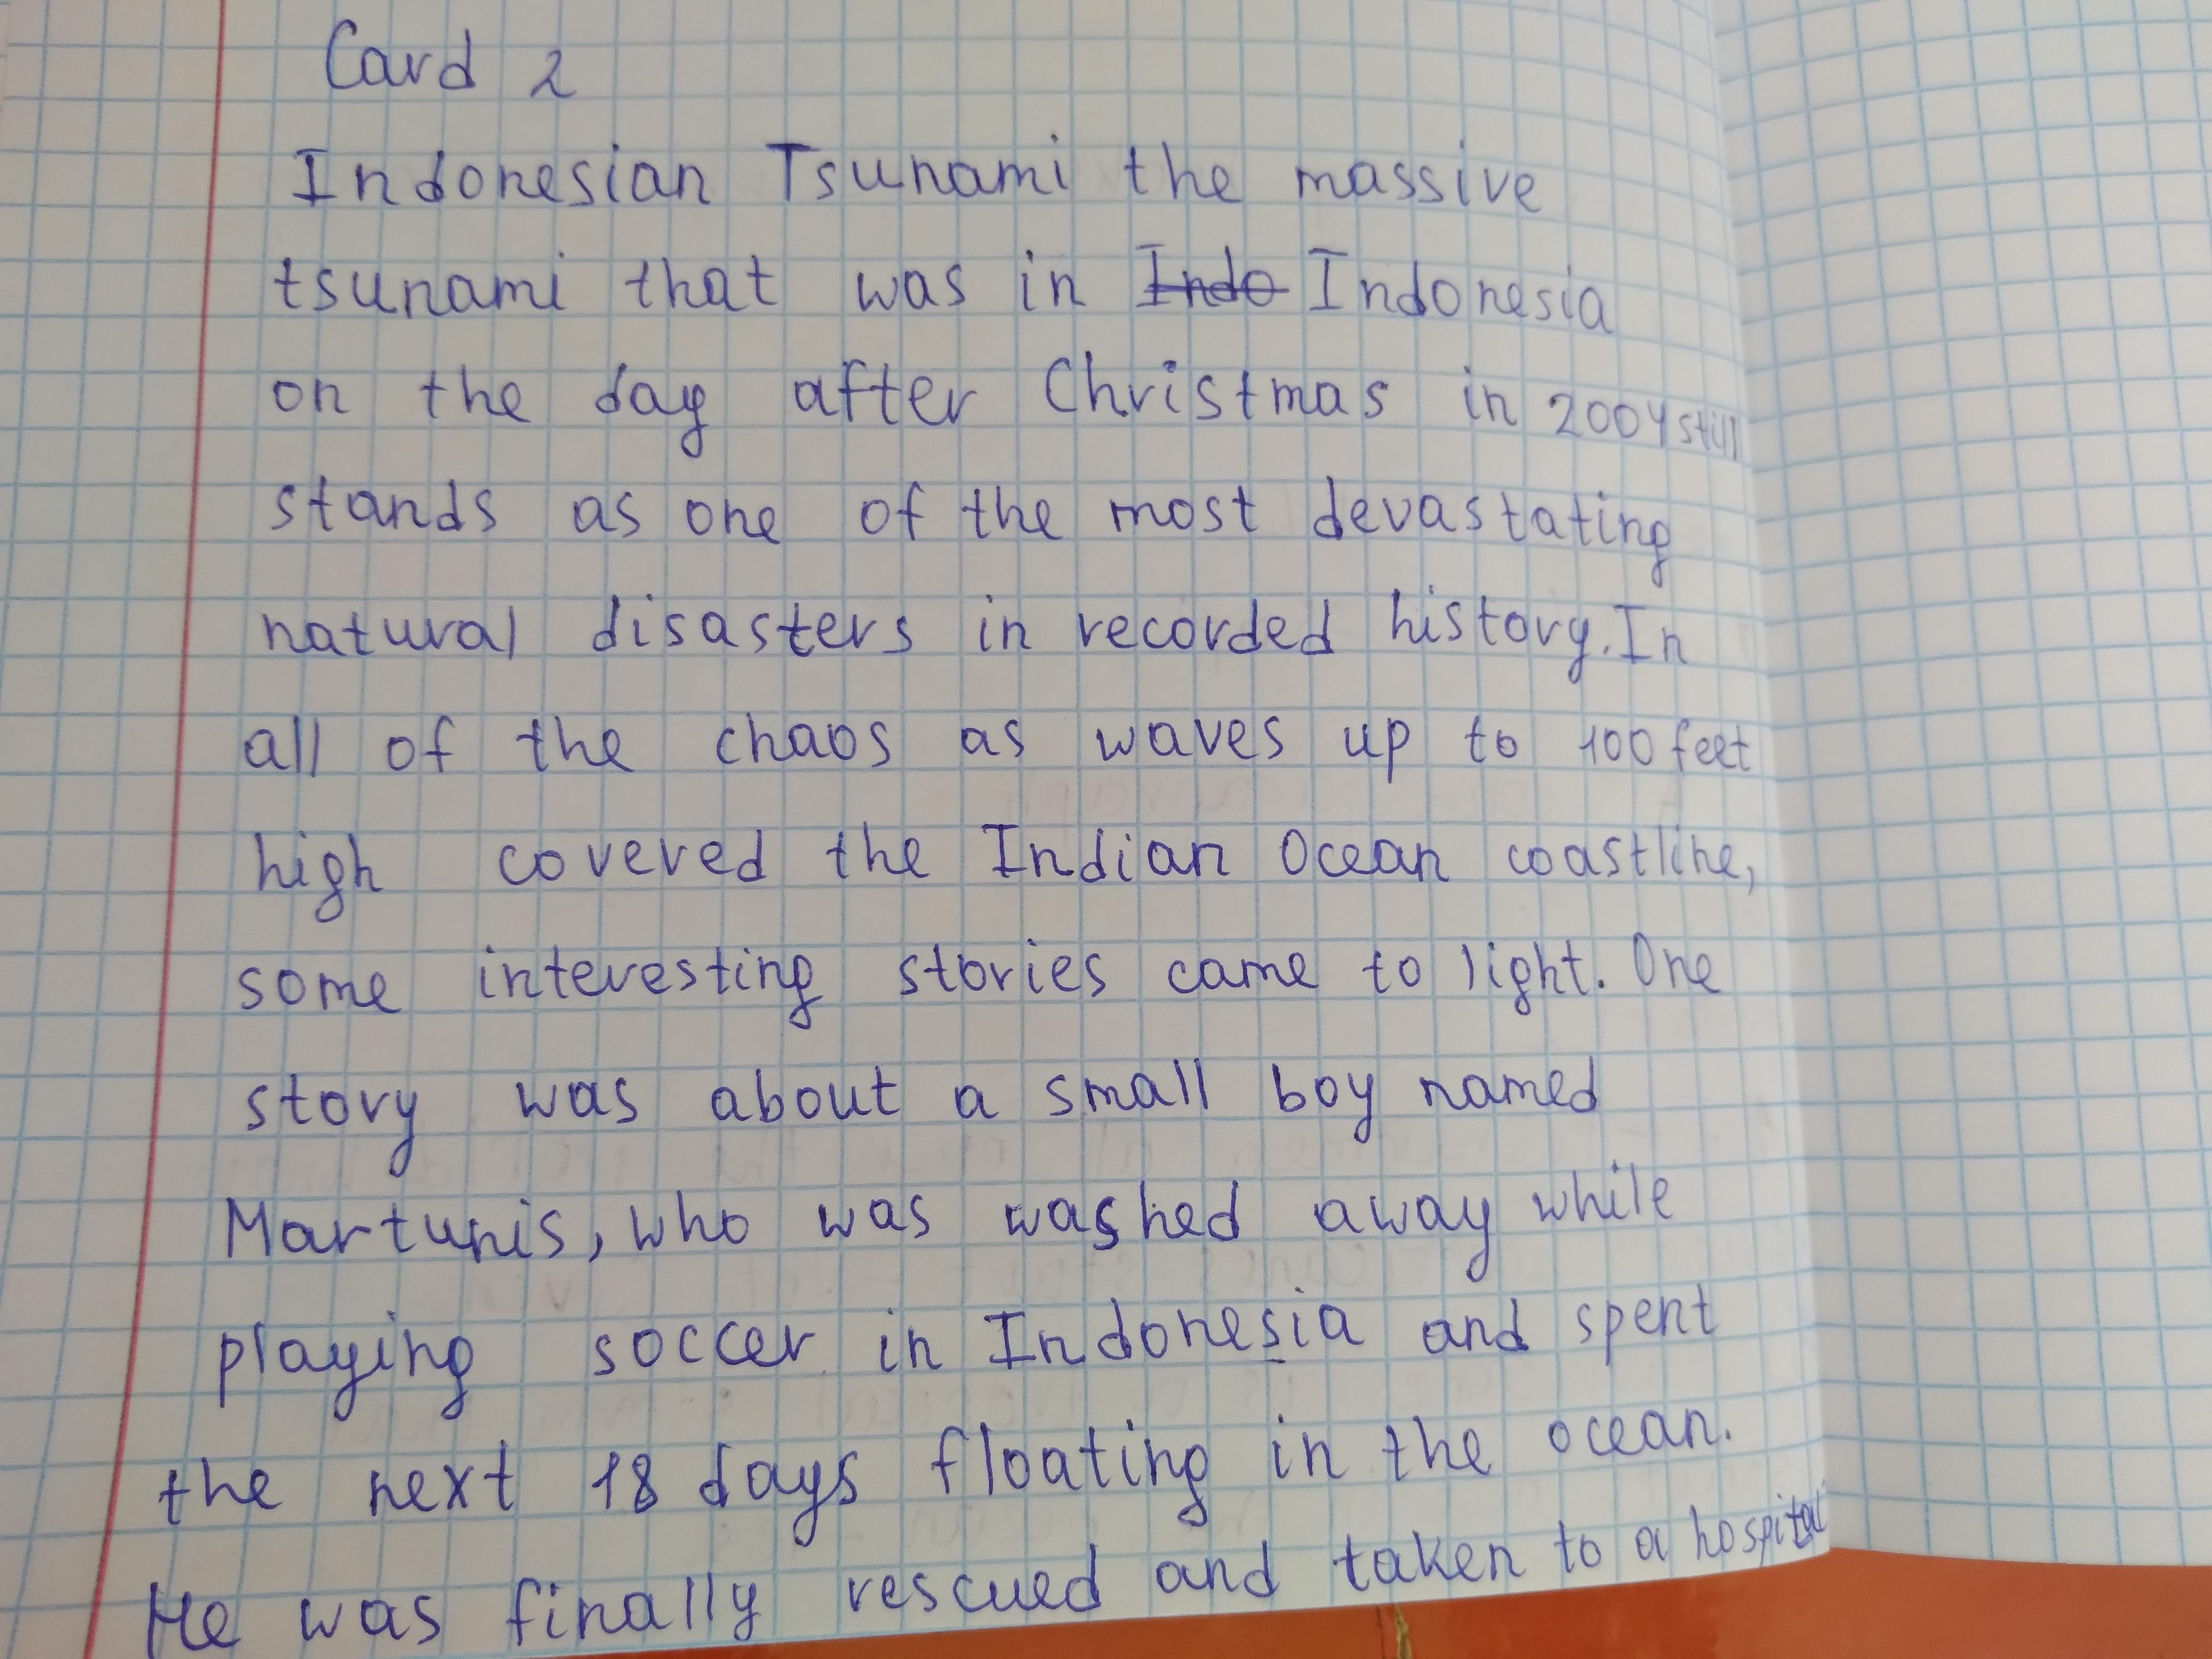 Card 2
Indonesian Tsunami the massive
tsunami that was in Indo Indonesia
on the day after Christmas in 2004 still
stands as one of the most devastating
natural disasters in recorded history. In
all of the chaos as waves up to 100 feet
high covered the Indian Ocean coastline,
some interesting stories came to light. One
story was about a small boy named
Martunis, who was washed away while
playing soccer in Indonesia and spent
the next 18 days floating in the ocean.
He was finally rescued and taken to a hospital